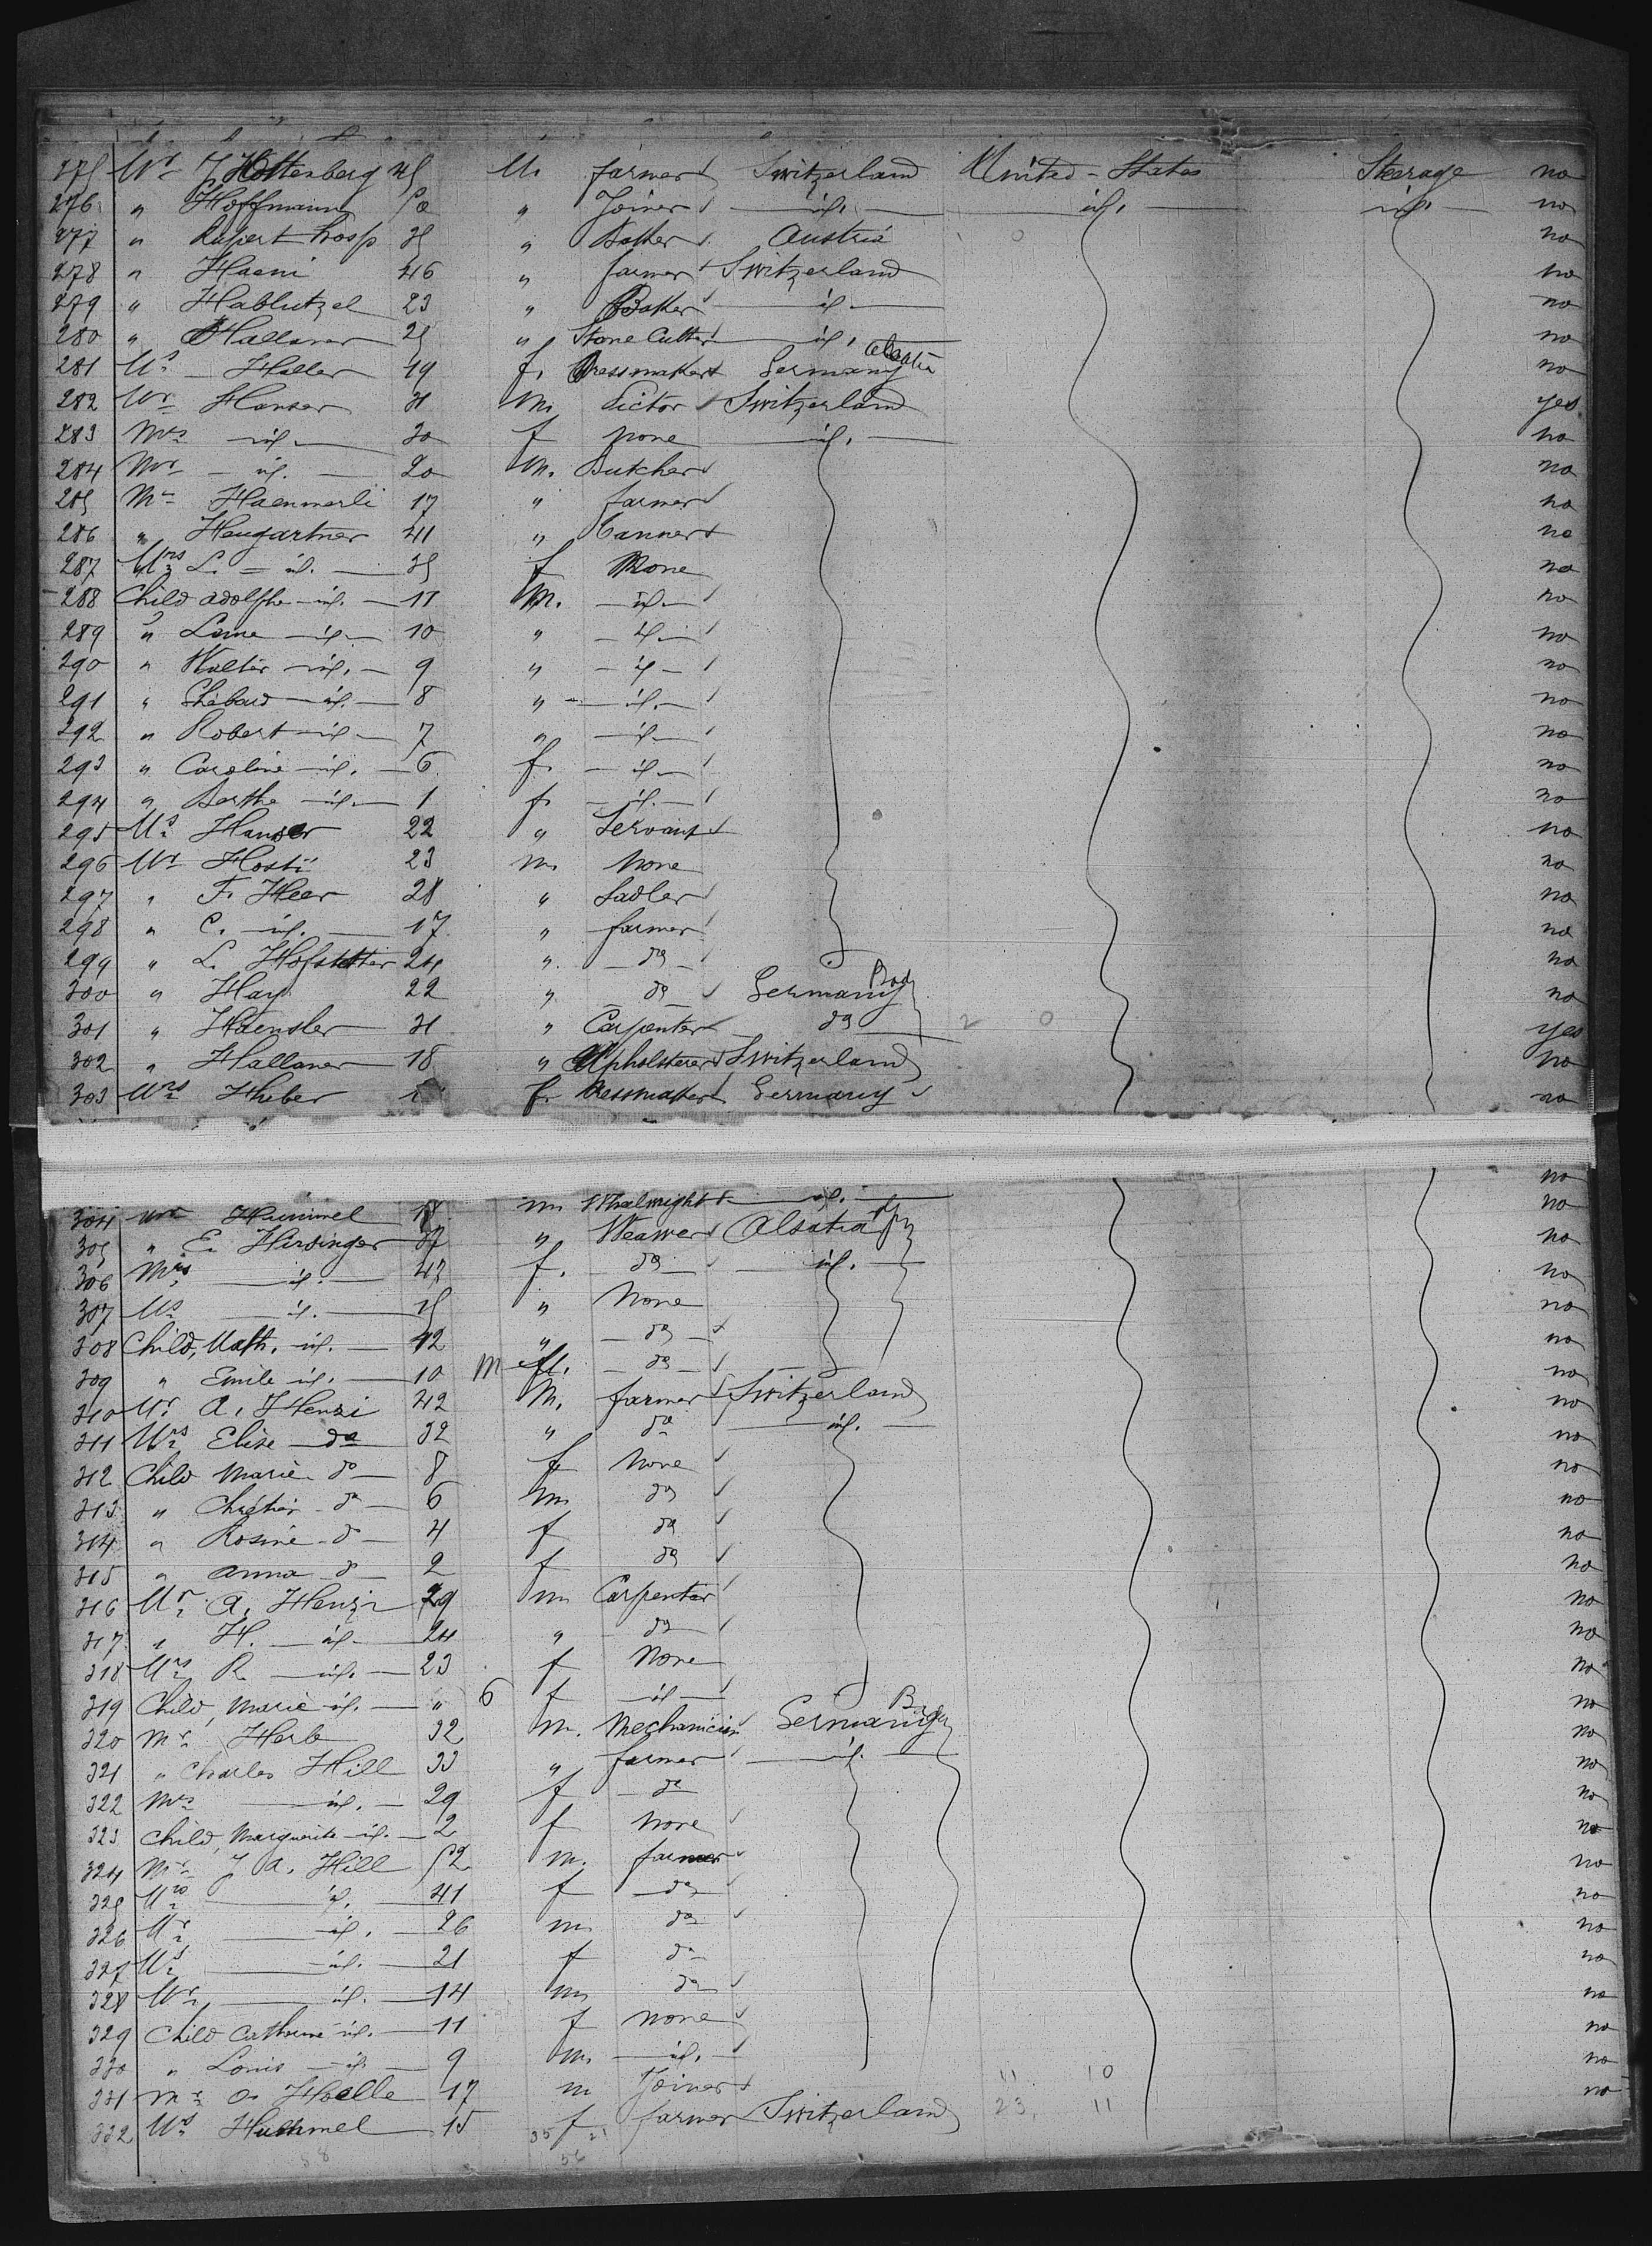 275 Mr J Hottenberg 25 M. farmer Switzerland United-States Steerage no
276 " Hoffmann 50 " Joiner id. id. id. no
277 " Rupert Prosp 35 " Baker Austria no
278 " Haeni 46 " farmer Switzerland no
279 " Hablutzel 23 " Baker id no
280 " Hallauer 25 " Stone Cutter id. no
281 Ms Haller 19 f. Dressmaker Germany Alsatia no
282 Mr Hanser 31 M. Switzerland yes
283 Mrs id. 30 f none id. no
284 Mr id. 20 M. Butcher no
285 Mr Haemmerli 17 " farmer no
286 " Hengartner 41 " Tanner no
287 Mrs L. id. 35 f None no
288 Child Adolphe id. 11 M. id. no
289 " id. 10 " id. no
290 " Walter id. 9 " id no
291 " id. 8 " id. no
292 " Robert id 7 " id no
293 " Caroline id. 6 f. id no
294 " Berthe id. 1 f. id. no
295 Ms Hauser 22 " Servant no
296 Mr Hosti 23 m None no
297 " F. Heer 28 " Sadler no
298 " C. id. 17 " farmer no
299 " L. Hofstetter 24 " do no
300 " Hay 22 " do Germany Bad no
301 " Haensler 31 " Carpenter do 2 0 yes
302 " Hallauer 18 " Upholsterer Switzerland no
303 Mrs Huber f. Dressmaker Germany no
no
304 Mr Hummel 18 m Whelwright id. no
305 " E. Hirsinger 37 " Weawer Alsatia no
306 Mrs id. 42 f. do id. no
307 Ms id. 15 " None no
308 Child, Math. id. 12 " do no
309 " Emile id. 10 M do no
310 Mr A. Henzi 42 M. farmer Switzerland no
311 Mrs Elise do 32 " do id. no
312 Child Marie do 8 f None no
313 " do 6 m do no
314 " Rosine do 4 f do no
315 " Anna do 2 f do no
316 Mr A. Henzi 29 m Carpenter no
317 " H. id. 24 " do no
318 Mrs R. id. 23 f None no
319 Child, Marie id. " 6 f id no
320 Mr Herb 32 M. Mechanicien Germany no
321 " Charles Hill 33 " farmer id. no
322 Mrs id. 29 f do no
323 Child, Marguerite id. 2 f none no
324 Mr J A. Hill 52 m. farmer no
325 Mrs id. 41 f do no
326 Mr id. 26 m do no
327 Ms id. 21 f do no
328 Mr id. 14 m do no
329 Child Catherine id. 11 f none no
330 " Louis id 9 m. id. no
331 Mr O. Hoelle 17 m Joiner 11 10 no
332 Ms Huthmel 15 f farmer Switzerland 23 11
35 21
58 56